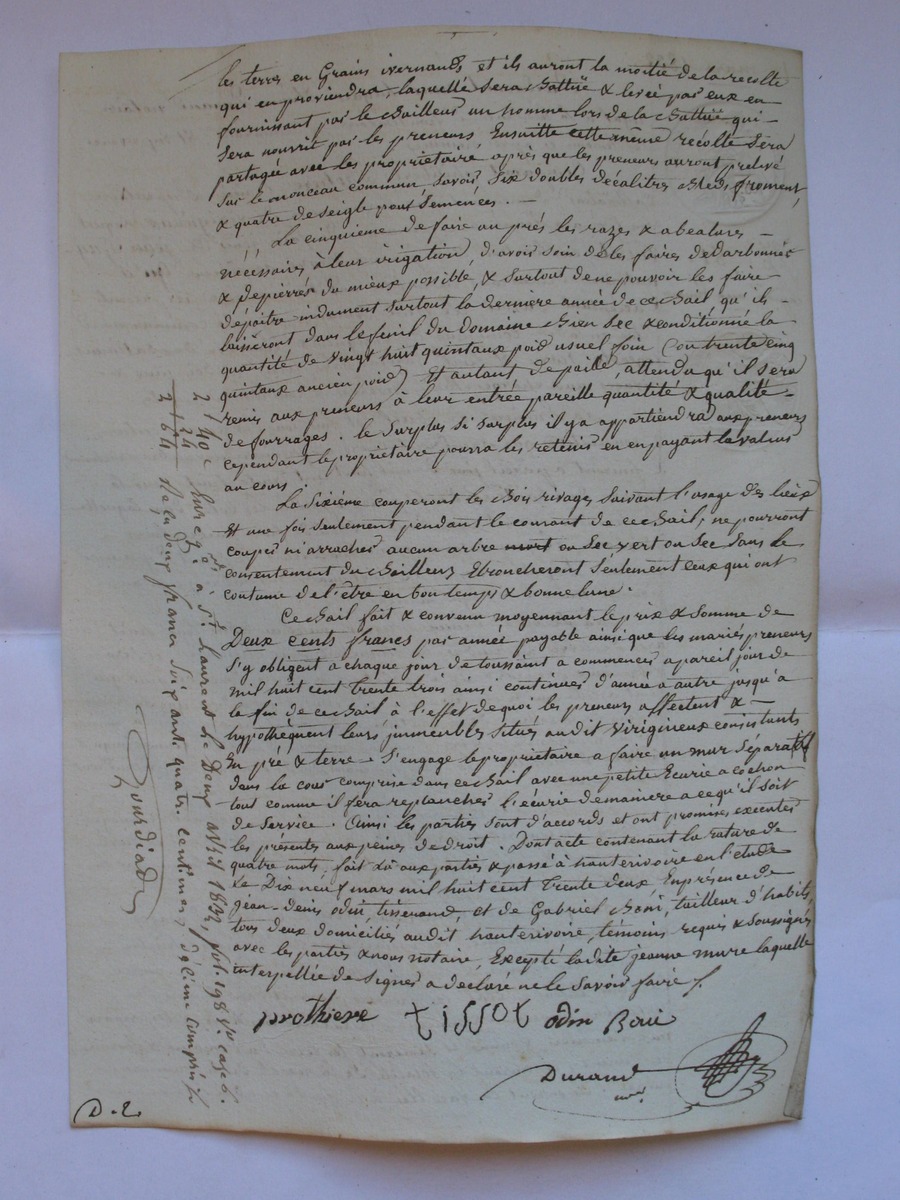 les terres en Grains ivernauds et ils auront la moitié de la recolte
qui en proviendra, laquelle sera battüe & levée par eux en
fournissant par le bailleur un homme lors de la battüe qui -
sera nourrit par les preneurs Ensuitte cette même récolte sera
partagée avec les propriétaire après que les preneurs auront prelevé
sur le monceau commun savoir, six doubles décalitres bleds froment,
& quatre de seigle pour semences. -
La cinquieme de faire au prés les razes & abealures -
nécessaires à leur irigation, d'avoir soin de les faires dedarbonner
& depierrér du mieux possible, & surtout de ne pouvoir les faire
depaitre indument surtout la derniere année de ce bail qu'ils -
laisséront dans le fenil du Domaine bien sec & conditionné la
quantité de vingt huit quintaux poid usuel foin (ou trente cinq
quintaux ancien poid) Et autant de paille, attendu qu'il sera
remis aux preneurs à leur entrée pareille quantité & qualité -
de fourrages. le surplus si surplus il y a appartiendra aux preneurs
cependant le propriétaire pourra les retenir en en payant la valeur
au cours.
La Sixiéme couperont les bois rivages suivant l'usage des lieux
Et une fois seulement pendant le courant de ce bail, ne pourront
couper ni arracher aucun arbre mort ou sec vert ou sec sans le
consentement du bailleur Ebroncheront seulement ceux qui ont
coutume de l'être en bon temps & bonne lune.
Ce bail fait & convenu moyennant le prix & somme de
Deux cents francs par année payable ainsi que les mariés preneurs
s'y obligent à chaque jour de toussaint a commencer a pareil jour de
mil huit cent trente trois ainsi continuer d'année a autre jusqu'a
le fin de ce bail à l'effet de quoi les preneurs affectent & -
hypothèquent leurs immeubles situés audit virigineux consistants
En pré & terre - S'engage le propriétaire a faire un mur séparatif
dans la cour comprise dans ce bail avec une petite Ecurie a cochon
tout comme il fera replancher l'écurie de maniere a ce qu'il soit
de service. Ainsi les parties sont d'accords et ont promises executer
les présentes aux peines de droit. Dont acte contenant la rature de
quatre mots, fait lû aux parties & passé à hauterivoire en l'etude
Le Dix neuf mars mil huit cent trente deux En présence de
jean-denis odin, tisserand, et de Gabriel boni, tailleur d'habits,
tous deux domiciliés audit hauterivoire, témoins requis & soussignés
avec les parties & nous notaire, Excepté ladite jeanne mure laquelle
interpellée de signer a déclaré ne le savoir faire /.
prothiere tissot odin Boni
Durand
D. 2.
2 f 40 c
24
2 64
Enreg. à St. Laurent le 1832, fol. 198 Vo. case 6.
Reçu deux francs soixante quatre centimes, dixieme compris
Gourdiat